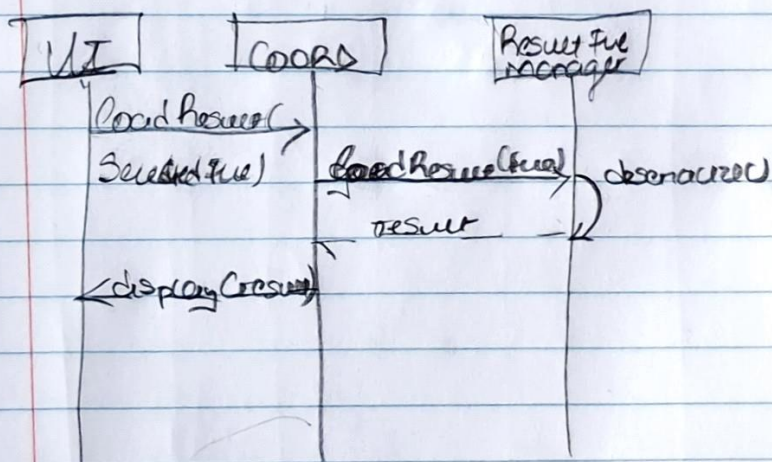 UI
COORD
Result File
Manager
loadResult(
SelectedFile)
loadResult(file)
deserialize()
result
display(result)